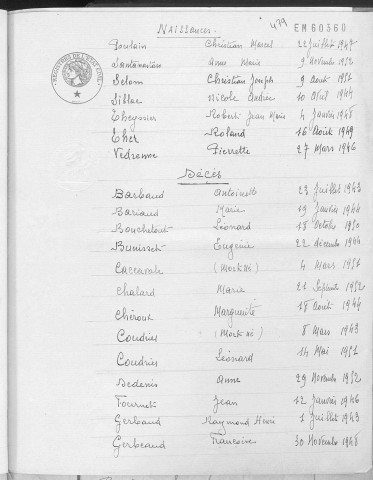 Naissances.
479
EM60360
Poulain Christian Marcel 22 Juillet 1947
Santanastan Anne Marie 9 Novembre 1952
Selom Christian Joseph 9 Aout 1951
Sillac Nicole Andrée 10 Aout 1944
Theyssier Robert Jean Marie 4 Janvier 1948
Ther Roland 16 Août 1949
Vedrenne Pierrette 27 Mars 1946
Décès
Barbaud Antoinette 23 Juillet 1943
Bariaud Marie 19 Janvier 1944
Bouchetout Léonard 18 Octobre 1950
Bunisset Eugénie 22 décembre 1944
Caccavale (Mort Né) 4 Mars 1951
Chalard Marie 21 Septembre 1952
Chérout Marguerite 18 Aout 1944
Coudrier (Mort né) 8 Mars 1943
Coudrier Léonard 14 Mai 1951
Dedenis Anne 29 Novembre 1952
Fournet Jean 12 Janvier 1946
Gerbaud Raymond Henri 1 Juillet 1943
Gerbeaud Françoise 30 Novembre 1948